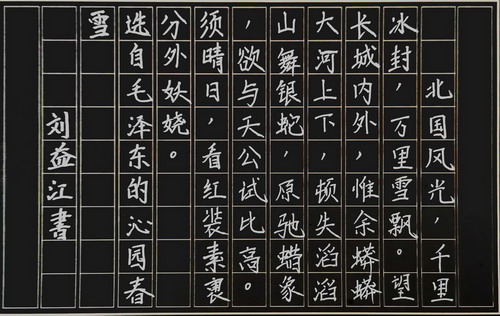 北国风光，千里
冰封，万里雪飘。望
长城内外，惟余蟒蟒
大河上下，顿失滔滔
山舞银蛇，原驰蜡象
，欲与天公试比高。
须晴日，看红装素裹
分外妖娆。
选自毛泽东的沁园春
雪
刘益江書